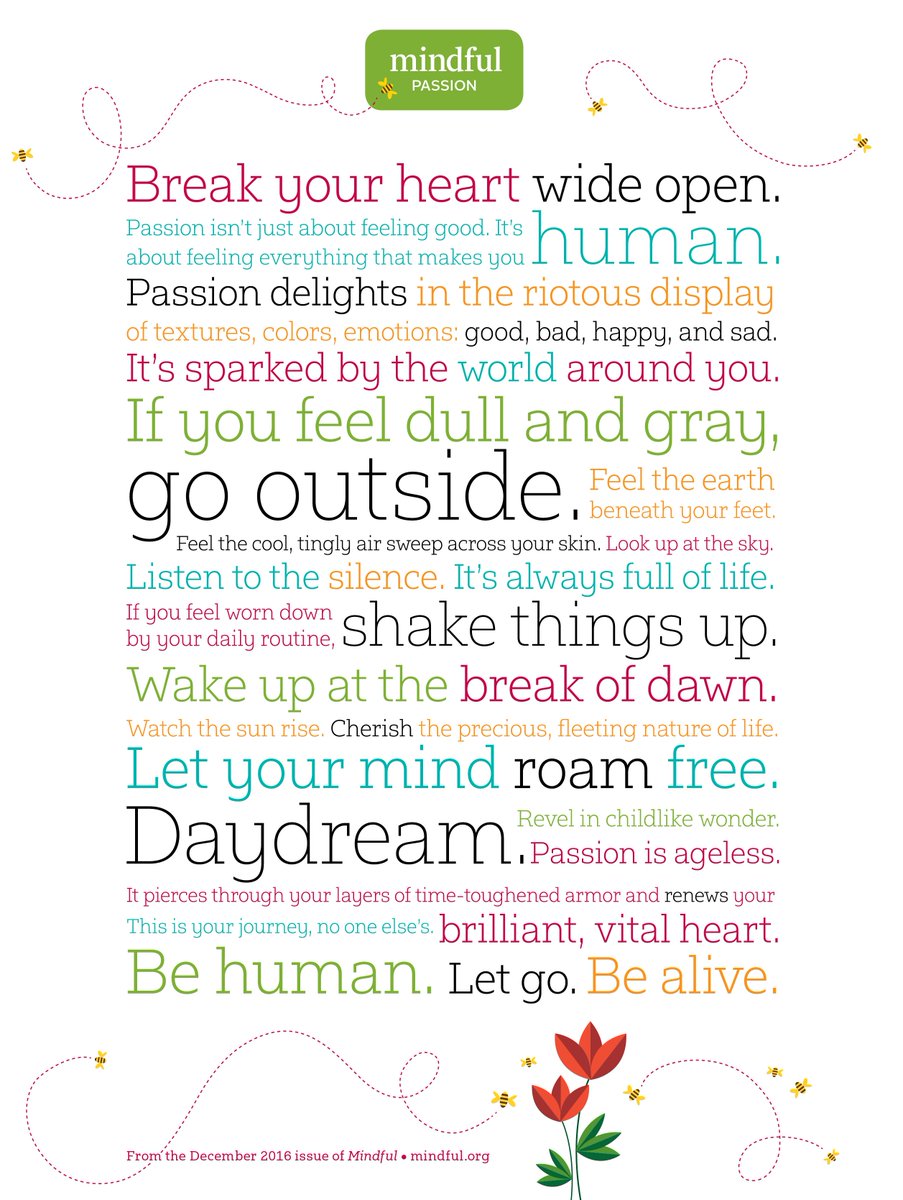 mindful
PASSION
Break your heart wide open.
Passion isn't just about feeling good. It's
about feeling everything that makes you human.
Passion delights in the riotous display
of textures, colors, emotions: good, bad, happy, and sad.
It's sparked by the world around you.
If you feel dull and gray,
go outside. Feel the earth
beneath your feet.
Feel the cool, tingly air sweep across your skin. Look up at the sky.
Listen to the silence. It's always full of life.
If you feel worn down
by your daily routine, shake things up.
Wake up at the break of dawn.
Watch the sun rise. Cherish the precious, fleeting nature of life.
Let your mind roam free.
Daydream. Revel in childlike wonder.
Passion is ageless.
It pierces through your layers of time-toughened armor and renews your
brilliant, vital heart.
This is your journey, no one else's.
Be human. Let go. Be alive.
From the December 2016 issue of Mindful • mindful.org